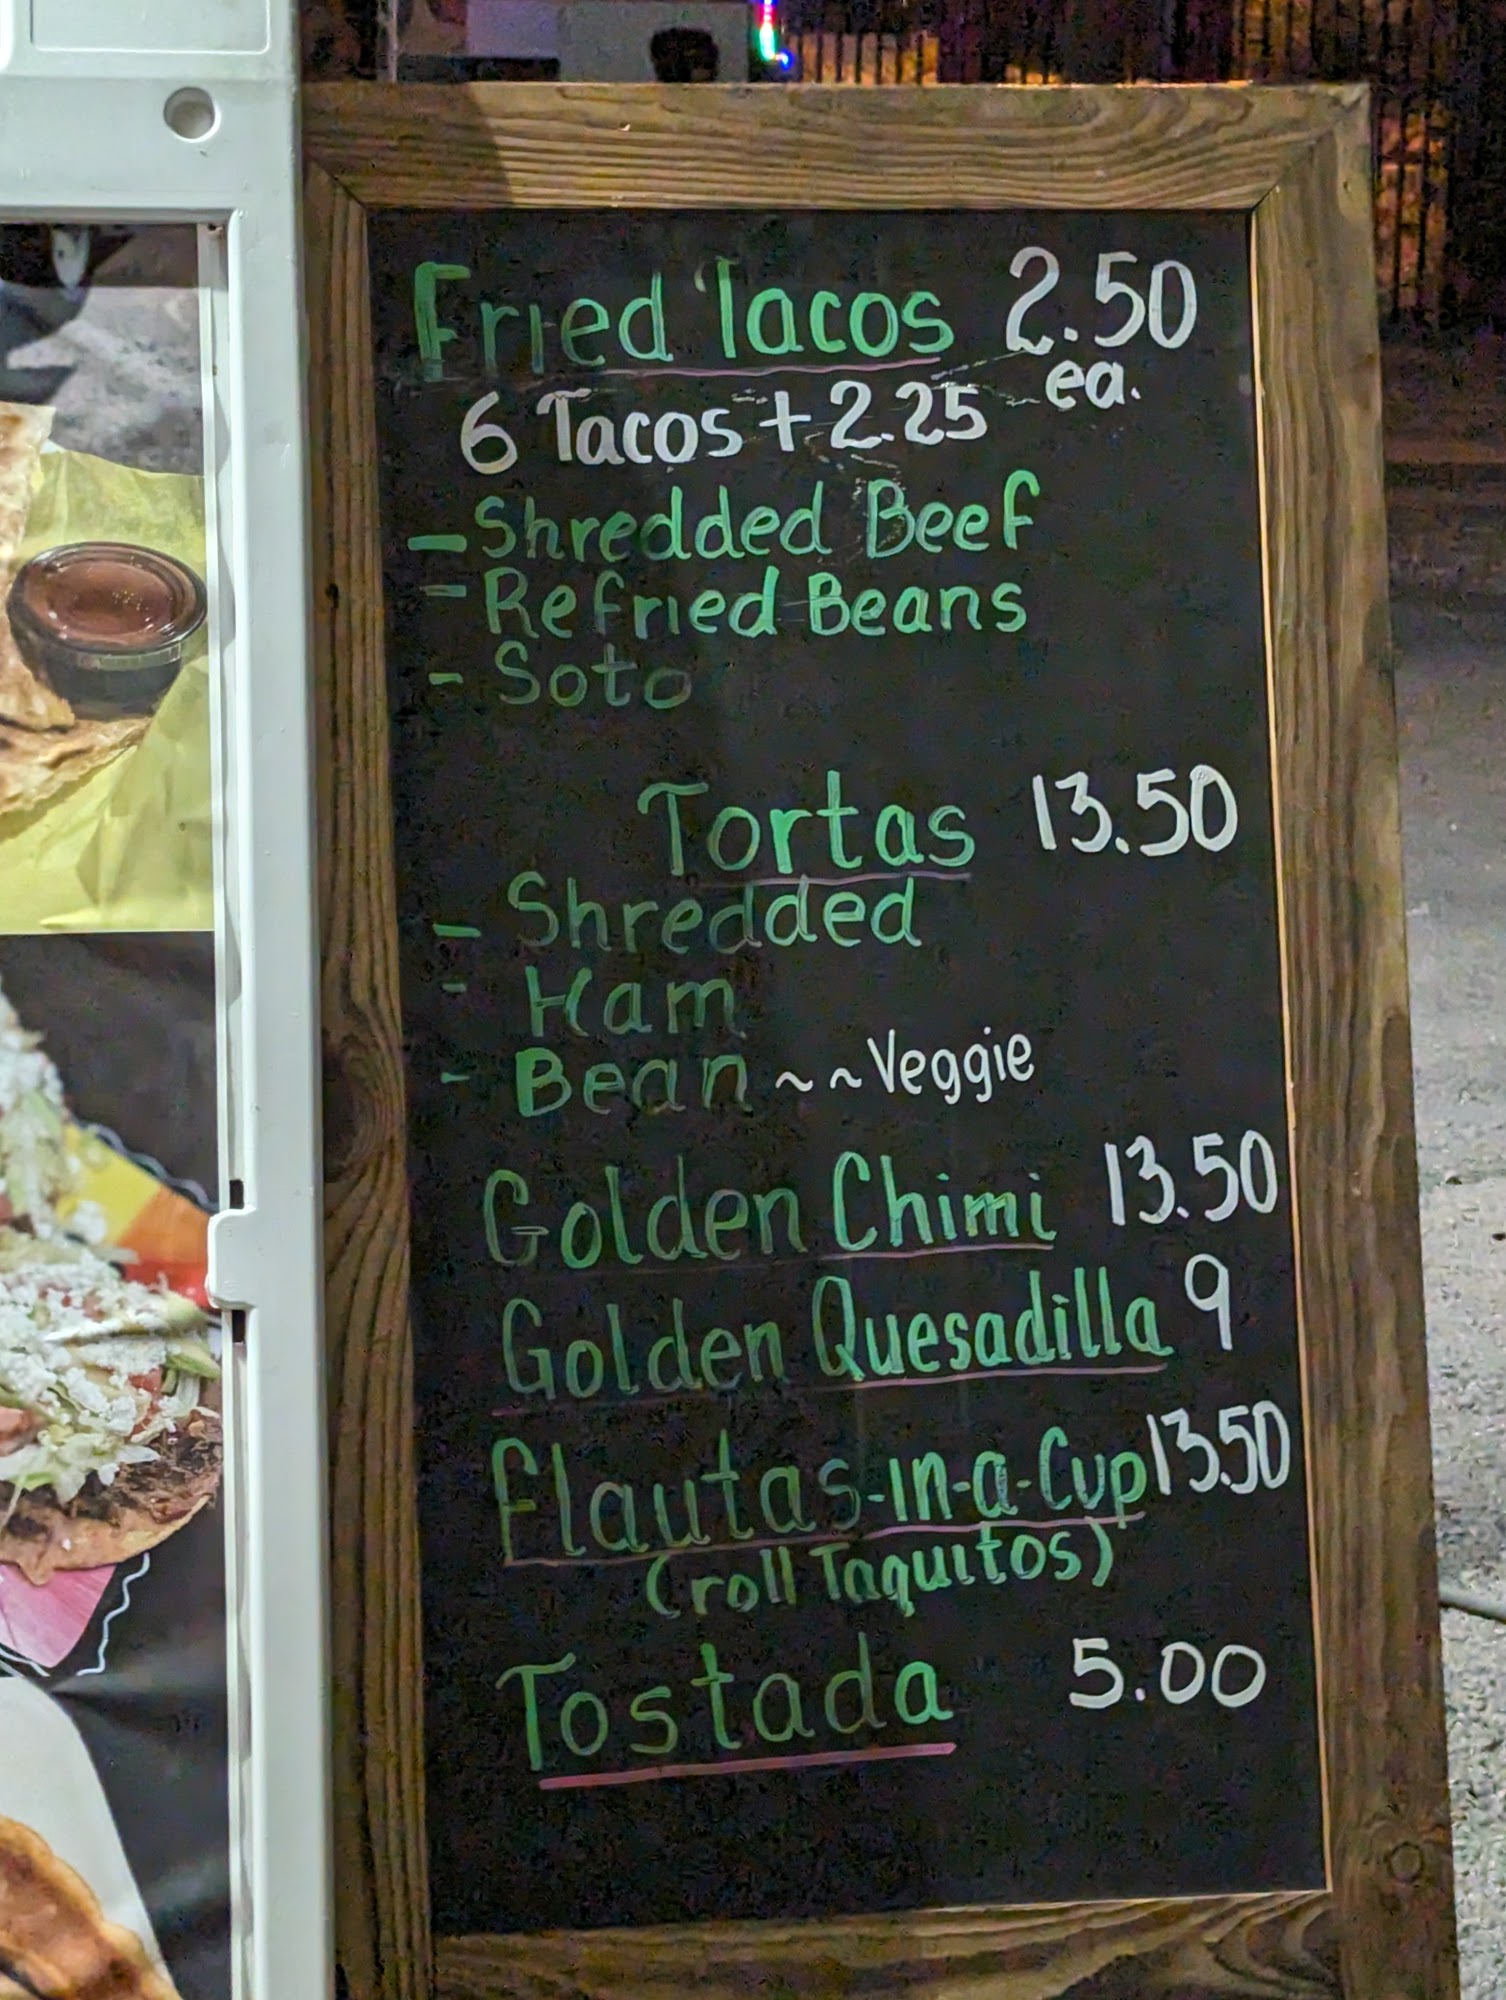 Fried Tacos 2.50
ea.
6 Tacos + 2.25
- Shredded Beef
- Refried Beans
- Soto
Tortas 13.50
- Shredded
- Ham
- Bean ~~Veggie
Golden Chimi 13.50
Golden Quesadilla 9
Flautas-in-a-Cup 13.50
(roll Taquitos)
Tostada 5.00